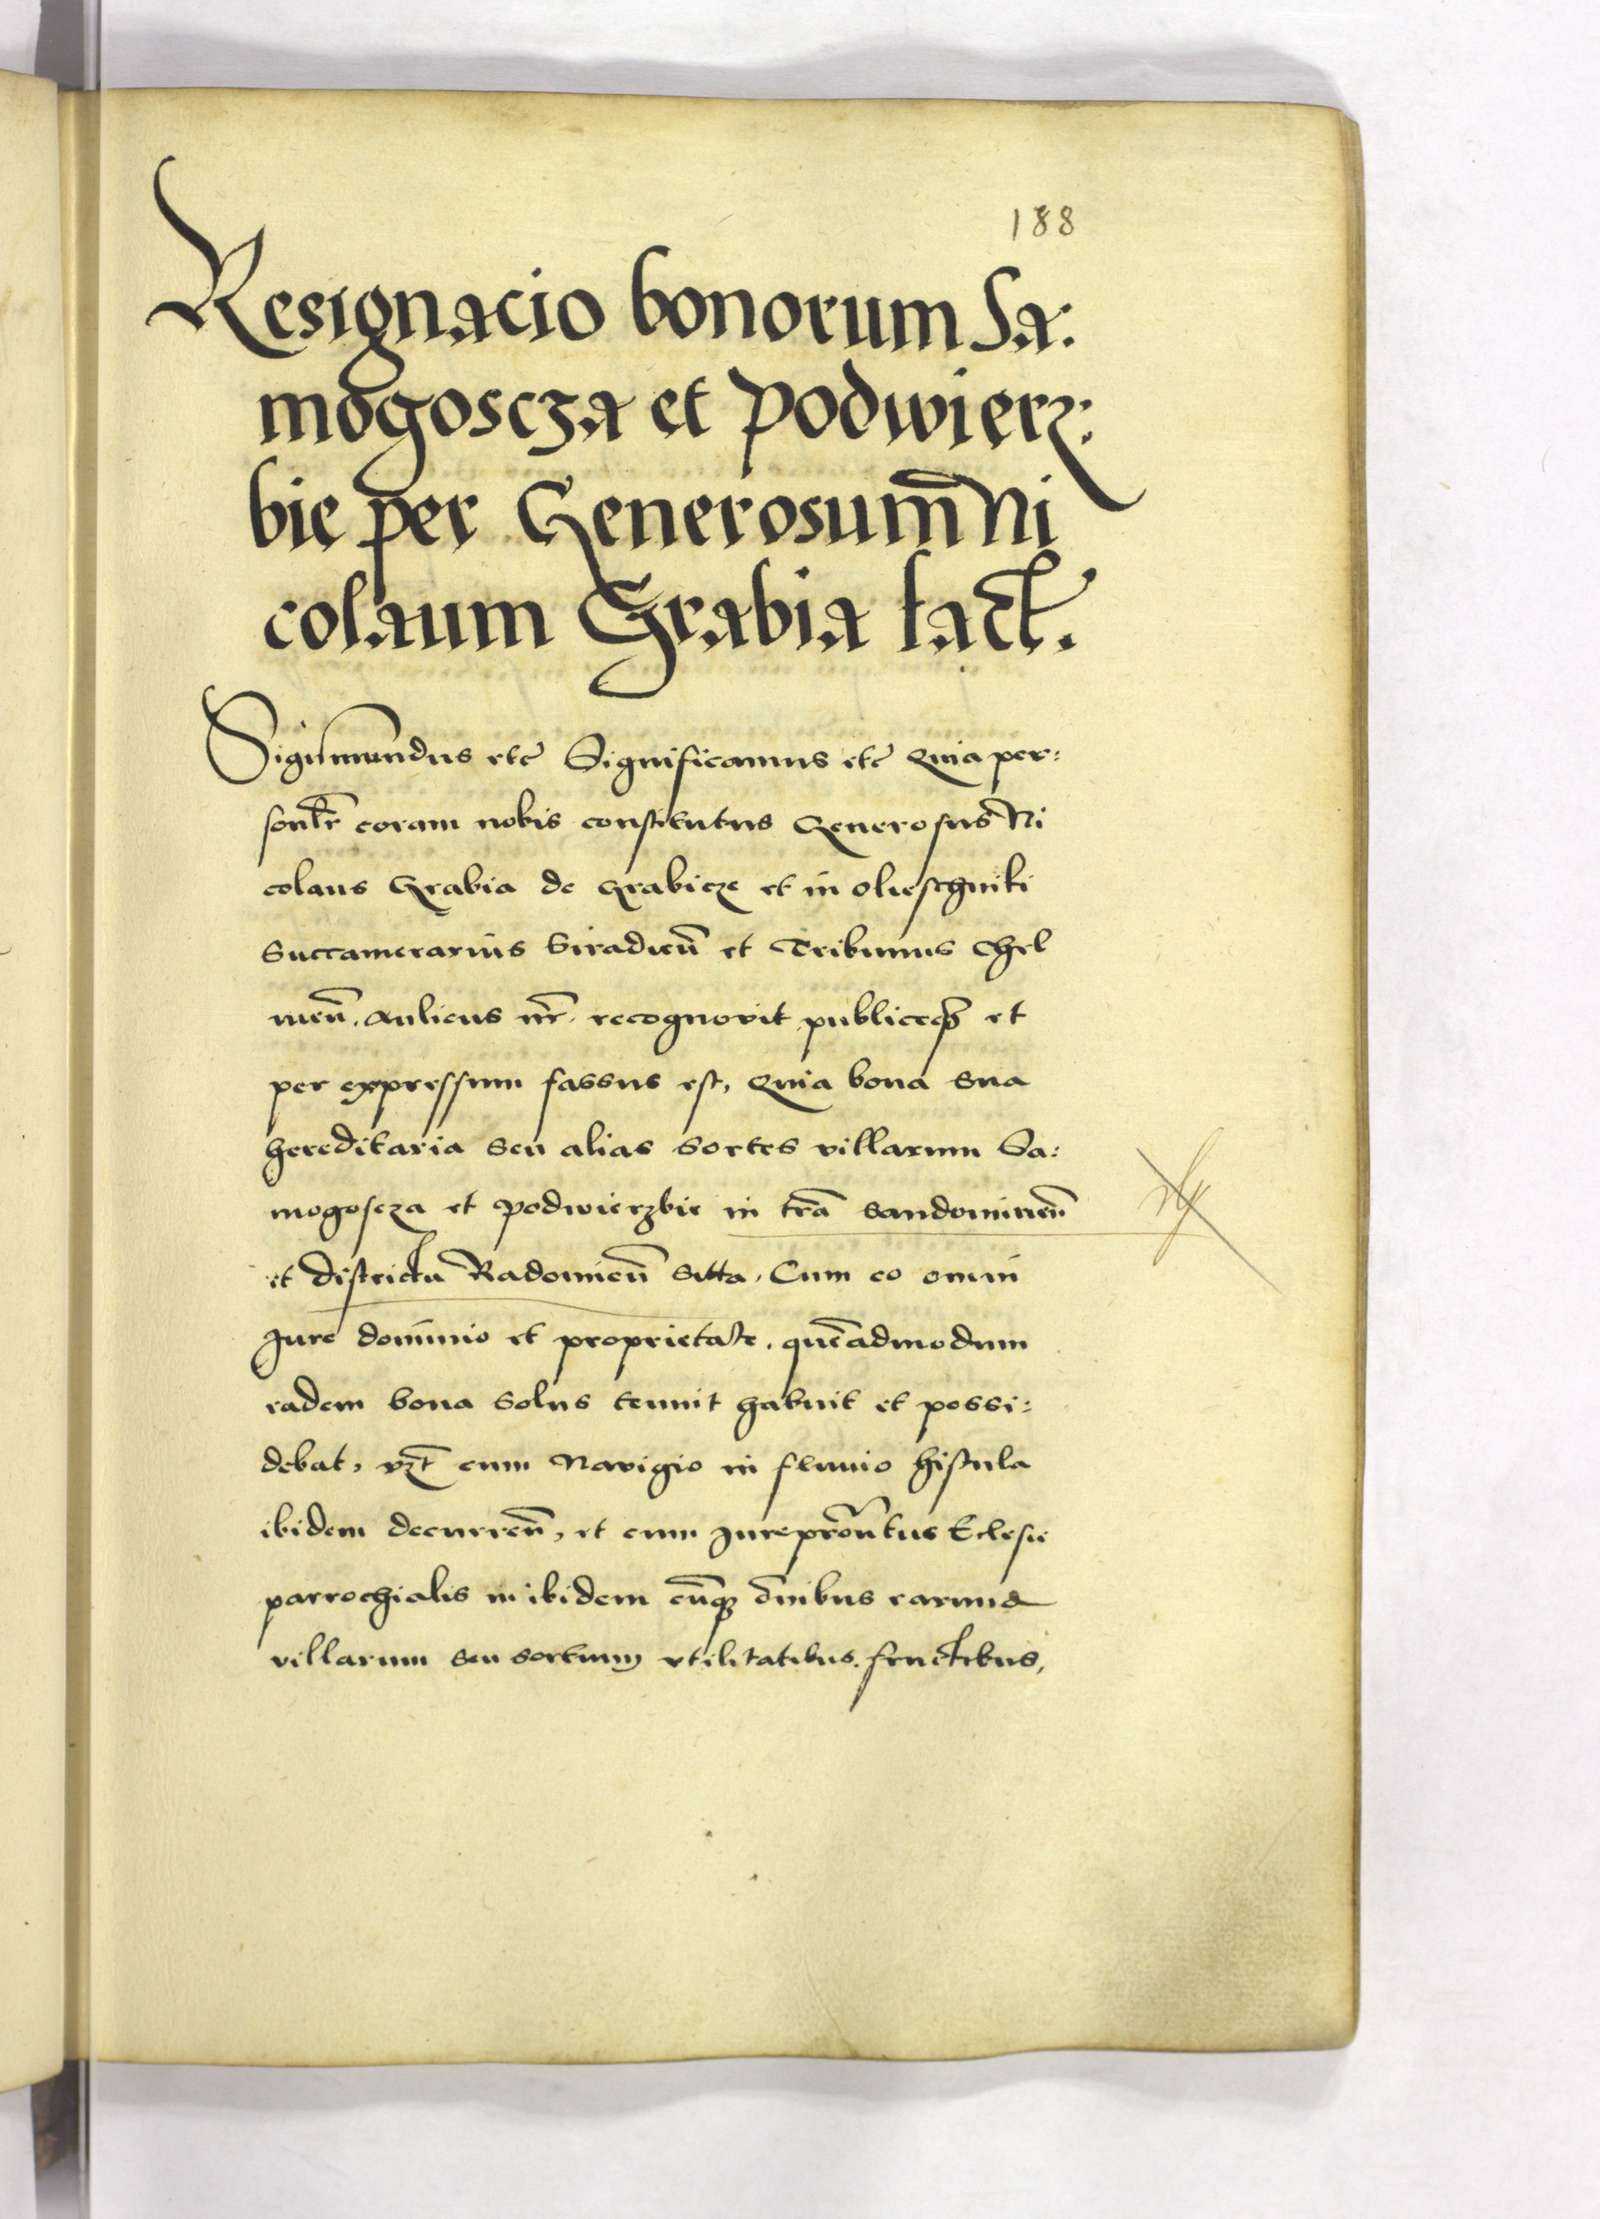 188
Resignacio bonorum Sa:
mogoscza et Podwierz:
bie per Generosum̄ Ni
colaum Grabia fact̄.
Sigismundus etc̄ Significamus etc̄ Quia per:
sonlr̄ coram nobis constitutus Generosus Ni
colaus Grabia de Grabicze et in Olieschniki
Succamerarius Siradien̄ et Tribunus Chel
men̄. Aulicus nr̄. recognovit publiceq̄ et
per expressum fassus est, Quia bona sua
hereditaria seu alias sortes villarum Sa:
mogoscza et Podwierzbie in tr̄a Sandomirien̄
et districtu Radomien̄ sitta. Cum eo omni
Jure dominio et proprietate. quēadmodum
eadem bona solus tenuit habuit et possi:
debat, vz̄t cum Navigio in fluvio histula
ibidem decurren̄, et cum Jurepr̄on̄tus Eclesie
parrochialis in ibidem cūq3 ōnibus earund
villarum seu sortium vtilitatibus. fructibus,